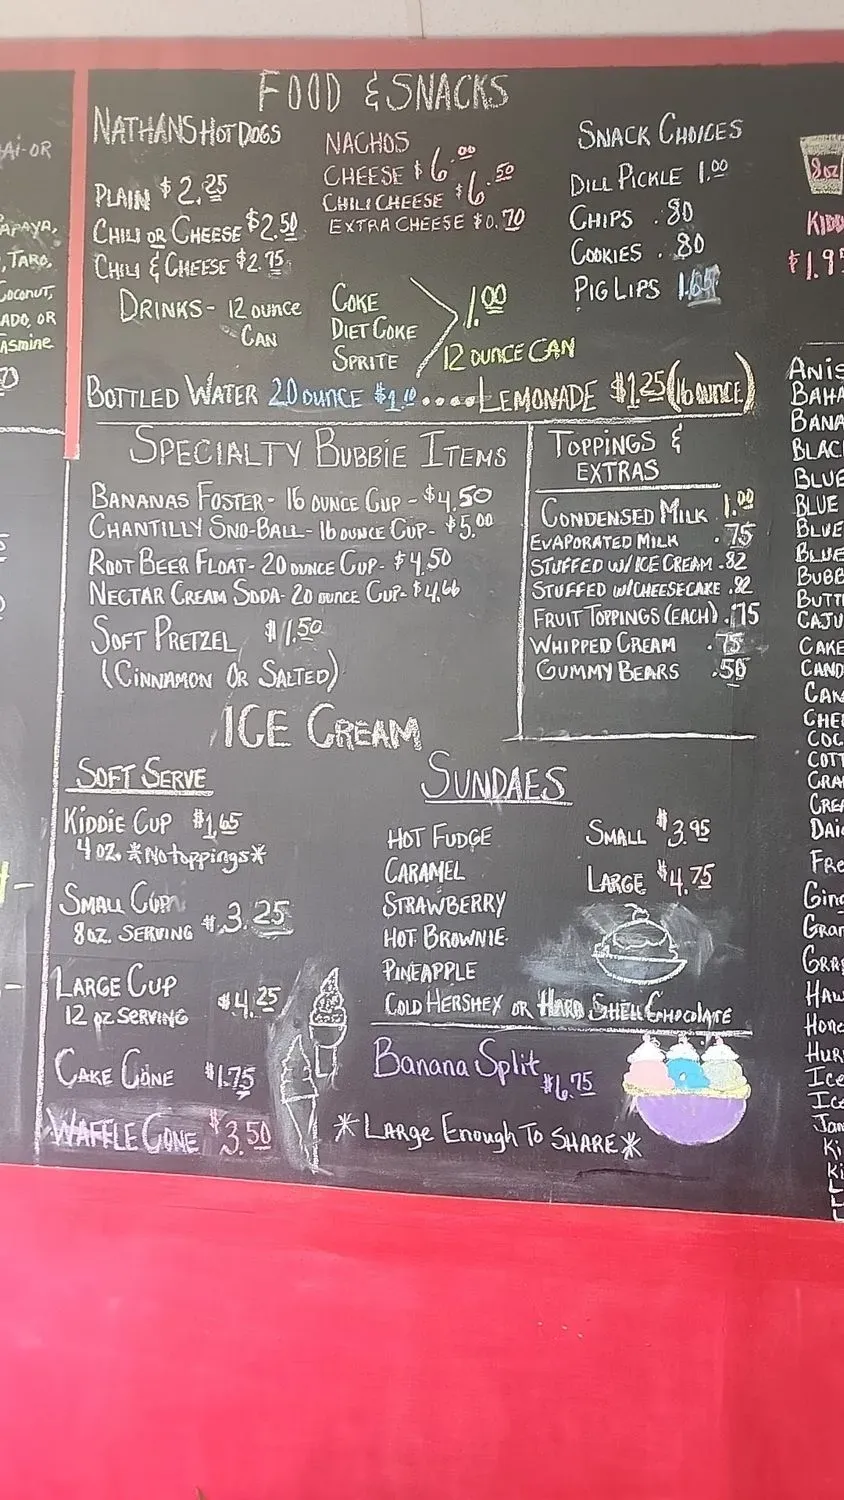 FOOD & SNACKS
NATHANS HOT DOGS
PLAIN $2.25
CHILI OR CHEESE $2.50
CHILI & CHEESE $2.75
NACHOS
CHEESE $6.00
CHILI CHEESE $6.50
EXTRA CHEESE $0.70
SNACK CHOICES
DILL PICKLE 1.00
CHIPS .80
COOKIES .80
PIG LIPS 1.65
DRINKS- 12 OUNCE
CAN
COKE
DIET COKE
SPRITE
1.00
12 OUNCE CAN
BOTTLED WATER 20 OUNCE $1.10 .... LEMONADE $1.25 (16 OUNCE)
SPECIALTY BUBBIE ITEMS
BANANAS FOSTER- 16 OUNCE CUP - $4.50
CHANTILLY SNO-BALL- 16 OUNCE CUP- $5.00
ROOT BEER FLOAT- 20 OUNCE CUP- $4.50
NECTAR CREAM SODA- 20 OUNCE CUP- $4.66
SOFT PRETZEL $1.50
(CINNAMON OR SALTED)
TOPPINGS &
EXTRAS
CONDENSED MILK 1.00
EVAPORATED MILK .75
STUFFED W/ICE CREAM .82
STUFFED W/CHEESECAKE .82
FRUIT TOPPINGS (EACH) .75
WHIPPED CREAM .75
GUMMY BEARS .50
ICE CREAM
SOFT SERVE
KIDDIE CUP $1.65
4 OZ. *No toppings*
SMALL CUP $3.25
8oz. SERVING
LARGE CUP $4.25
12 OZ SERVING
CAKE CONE $1.75
WAFFLE CONE $3.50
SUNDAES
HOT FUDGE
CARAMEL
STRAWBERRY
HOT BROWNIE
PINEAPPLE
COLD HERSHEY OR HARD SHELL CHOCOLATE
SMALL $3.95
LARGE $4.75
Banana Split $6.75
*LARGE ENOUGH TO SHARE*
AI-OR
APAYA,
, TARO,
Coconut,
ADO, OR
ASMINE
8oz
KIDD
$1.9
ANIS
BAHA
BANA
BLACK
BLUE
BLUE
BLUE
BLUE
BUBB
BUTT
CAJU
CAKE
CAND
CAN
CHE
COC
COTT
GRA
CREA
DAI
FRE
Ging
Gran
GRA
HAW
Hone
HUR
Ice
Ice
Jam
Ki
Ki